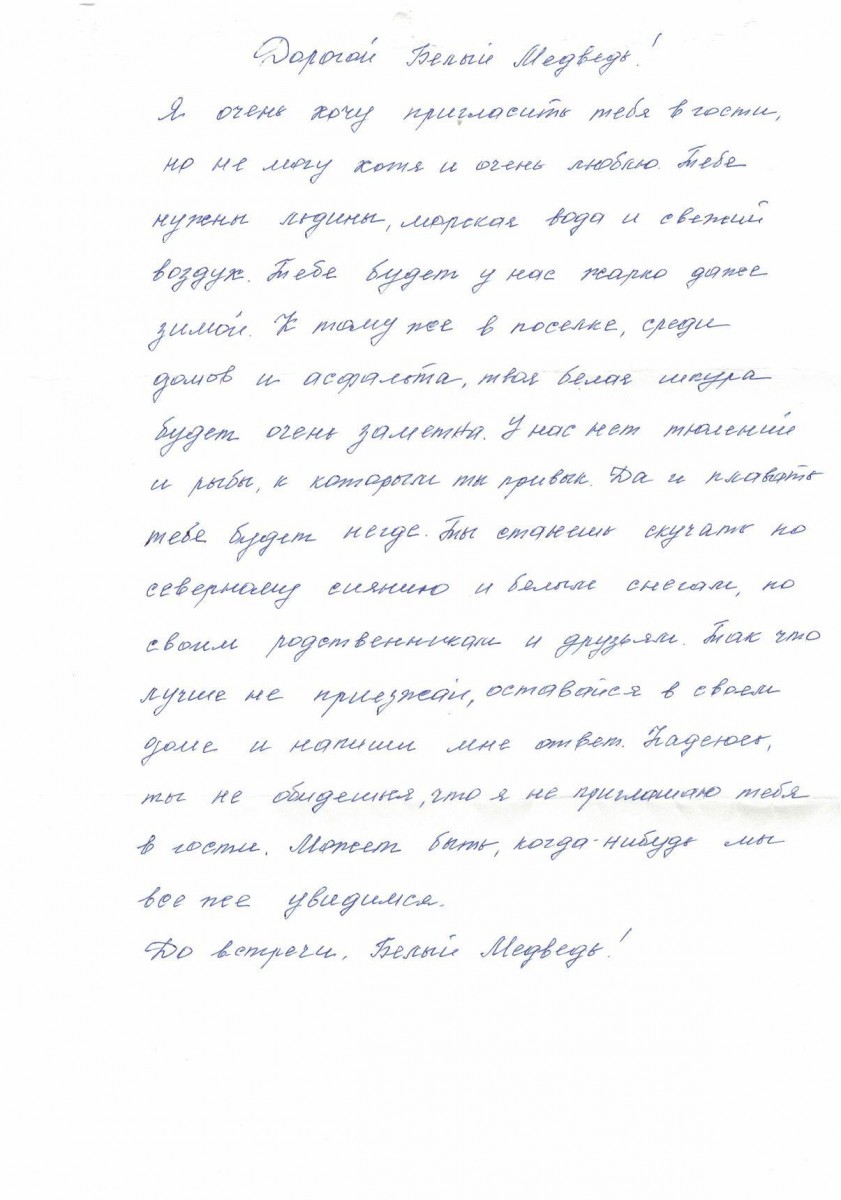 Дорогой Белый Медведь!
Я очень хочу пригласить тебя в гости,
но не могу хотя и очень люблю. Тебе
нужны льдины, морская вода и свежий
воздух. Тебе будет у нас жарко даже
зимой. К тому же в поселке, среди
домов и асфальта, твоя белая шкура
будет очень заметна. У нас нет тюлений
и рыбы, к которым ты привык. Да и плавать
тебе будет негде. Ты станешь скучать по
северному сиянию и белым снегам, по
своим родственникам и друзьям. Так что
лучше не приезжай, оставайся в своем
доме и напиши мне ответ. Надеюсь,
ты не обидешься, что я не приглашаю тебя
в гости. Может быть, когда-нибудь мы
все же увидимся.
До встречи, Белый Медведь!